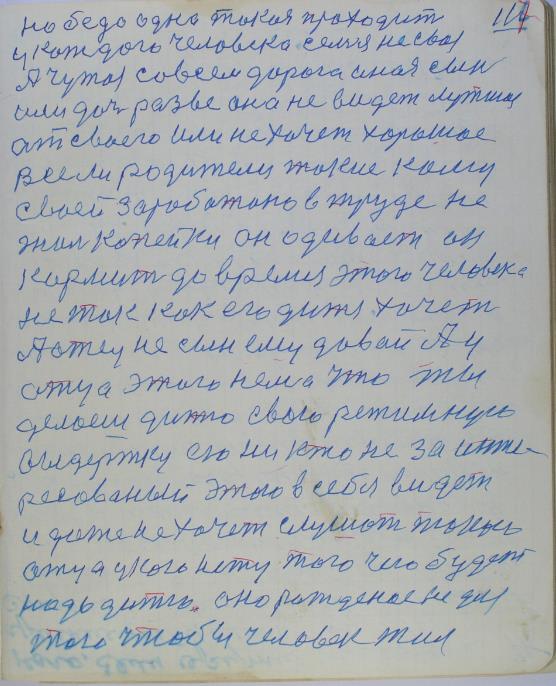 117
но беда одна такая проходит
у каждого человека семья не своя
А чужая совсем дорога иная сын
или доч разве она не видет лутшая
ат своего или не хочет хорошое
Всели родители такие кому
своей заработано в труде не
жал копейки он одивает он
кормит до время этого человека
не так как его дитя хочет
А отец не сын ему давай А у
отца этого нема что ты
делаеш дитю свою режимную
выдержку ею ни кто не за инте-
ресованый этого в себя видет
и даже не хочет слушат такого
отца у кого нету того чего будет
надо дитю. оно рожденае не для
того чтобы человек жил